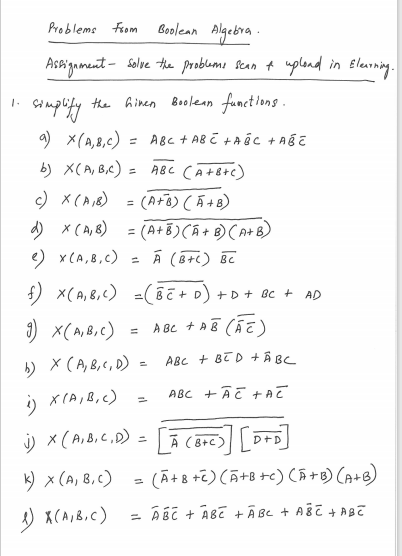 Problems from Boolean Algebra.
Assignment – Solve the problems scan & upload in Elearning.
1. Simplify the Given Boolean functions.
a) X(A,B,C) = ABC + ABC̅ + AB̅C + AB̅C̅
b) X(A,B,C) = A̅B̅C̅ (A̅+̅B̅+̅C̅)
c) X(A,B) = (̅A̅+̅B̅̅)̅ ̅(̅A̅̅+̅B̅)̅
d) X(A,B) = (̅A̅+̅B̅̅)̅ ̅(̅A̅̅+̅B̅)̅ ̅(̅A̅+̅B̅)̅
e) X(A,B,C) = A̅ (B̅+̅C̅) B̅C̅
f) X(A,B,C) = (̅B̅̅C̅̅+̅D̅)̅ + D + BC + AD
g) X(A,B,C) = ABC + AB̅ (A̅̅C̅̅)
h) X(A,B,C,D) = ABC + BC̅D + A̅BC
i) X(A,B,C) = ABC + A̅C̅ + AC̅
j) X(A,B,C,D) = [̅A̅̅ ̅(̅B̅̅+̅̅C̅̅)̅]̅ ̅[̅D̅̅+̅̅D̅̅]̅
k) X(A,B,C) = (A̅+B+C̅) (A̅+B+C) (A̅+B) (A+B)
l) X(A,B,C) = A̅B̅C̅ + A̅BC̅ + A̅BC + AB̅C̅ + ABC̅